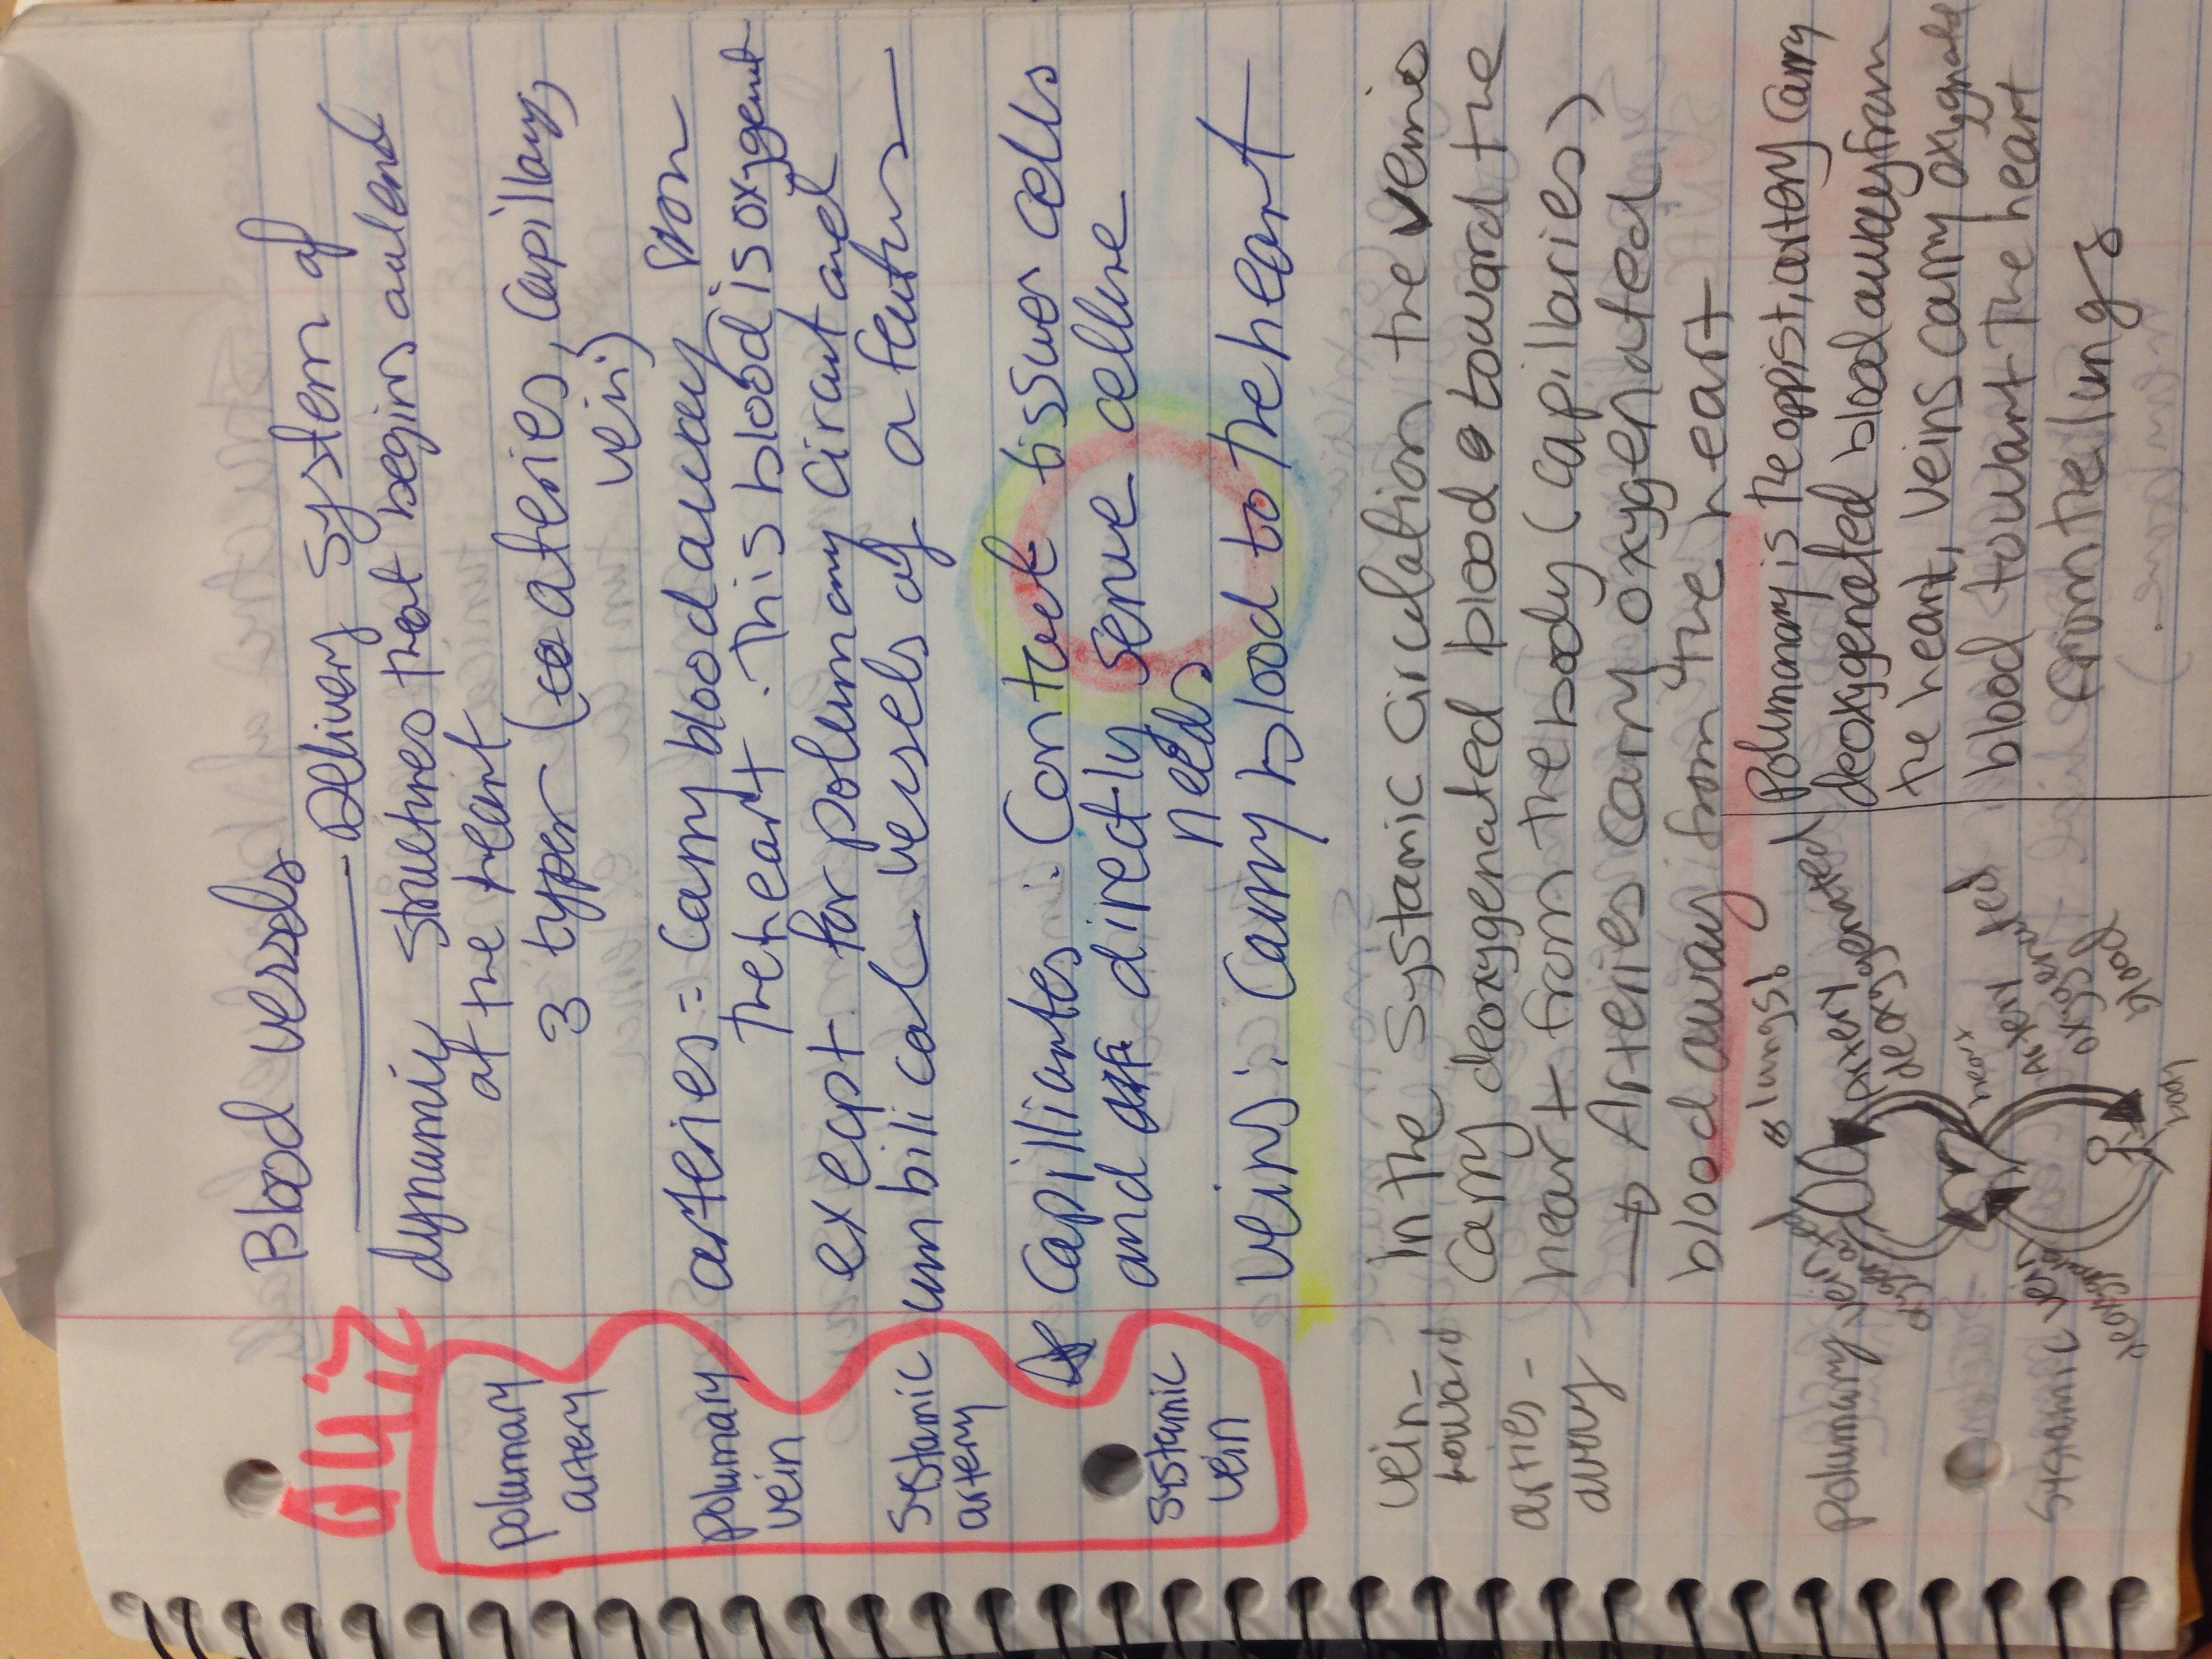 Blood vessels
Delivery system of
dynamic structures that begins and ends
at the heart
3 types (ateries, Capillary,
vein)
arteries = Carry blood away from
The heart. This blood is oxygent
execpt for polumary cirant and
umbilical vessels of a feutus
Capilliartes: Contact tissuer cells
and directly serve cellure
needs
veins: Carry blood to the heart
QUIZ
polumary
artery
polumary
vein
systamic
artery
systamic
vein
In the systamic circulation the veins
Carry deoxygenated blood toward the
heart from the body (capilaries)
→ Arteries carry oxygenated
blood away from the heart
vein-
toward
arties-
away
Polumanary is the oppist, artery carry
deoxygenated blood away from
the heart, veins carry oxygnated
blood towart the heart
from the lungs
lungs!
artery
deoxygenated
heart
artery
oxygenated
blood
body
polumary vein
systamic vein